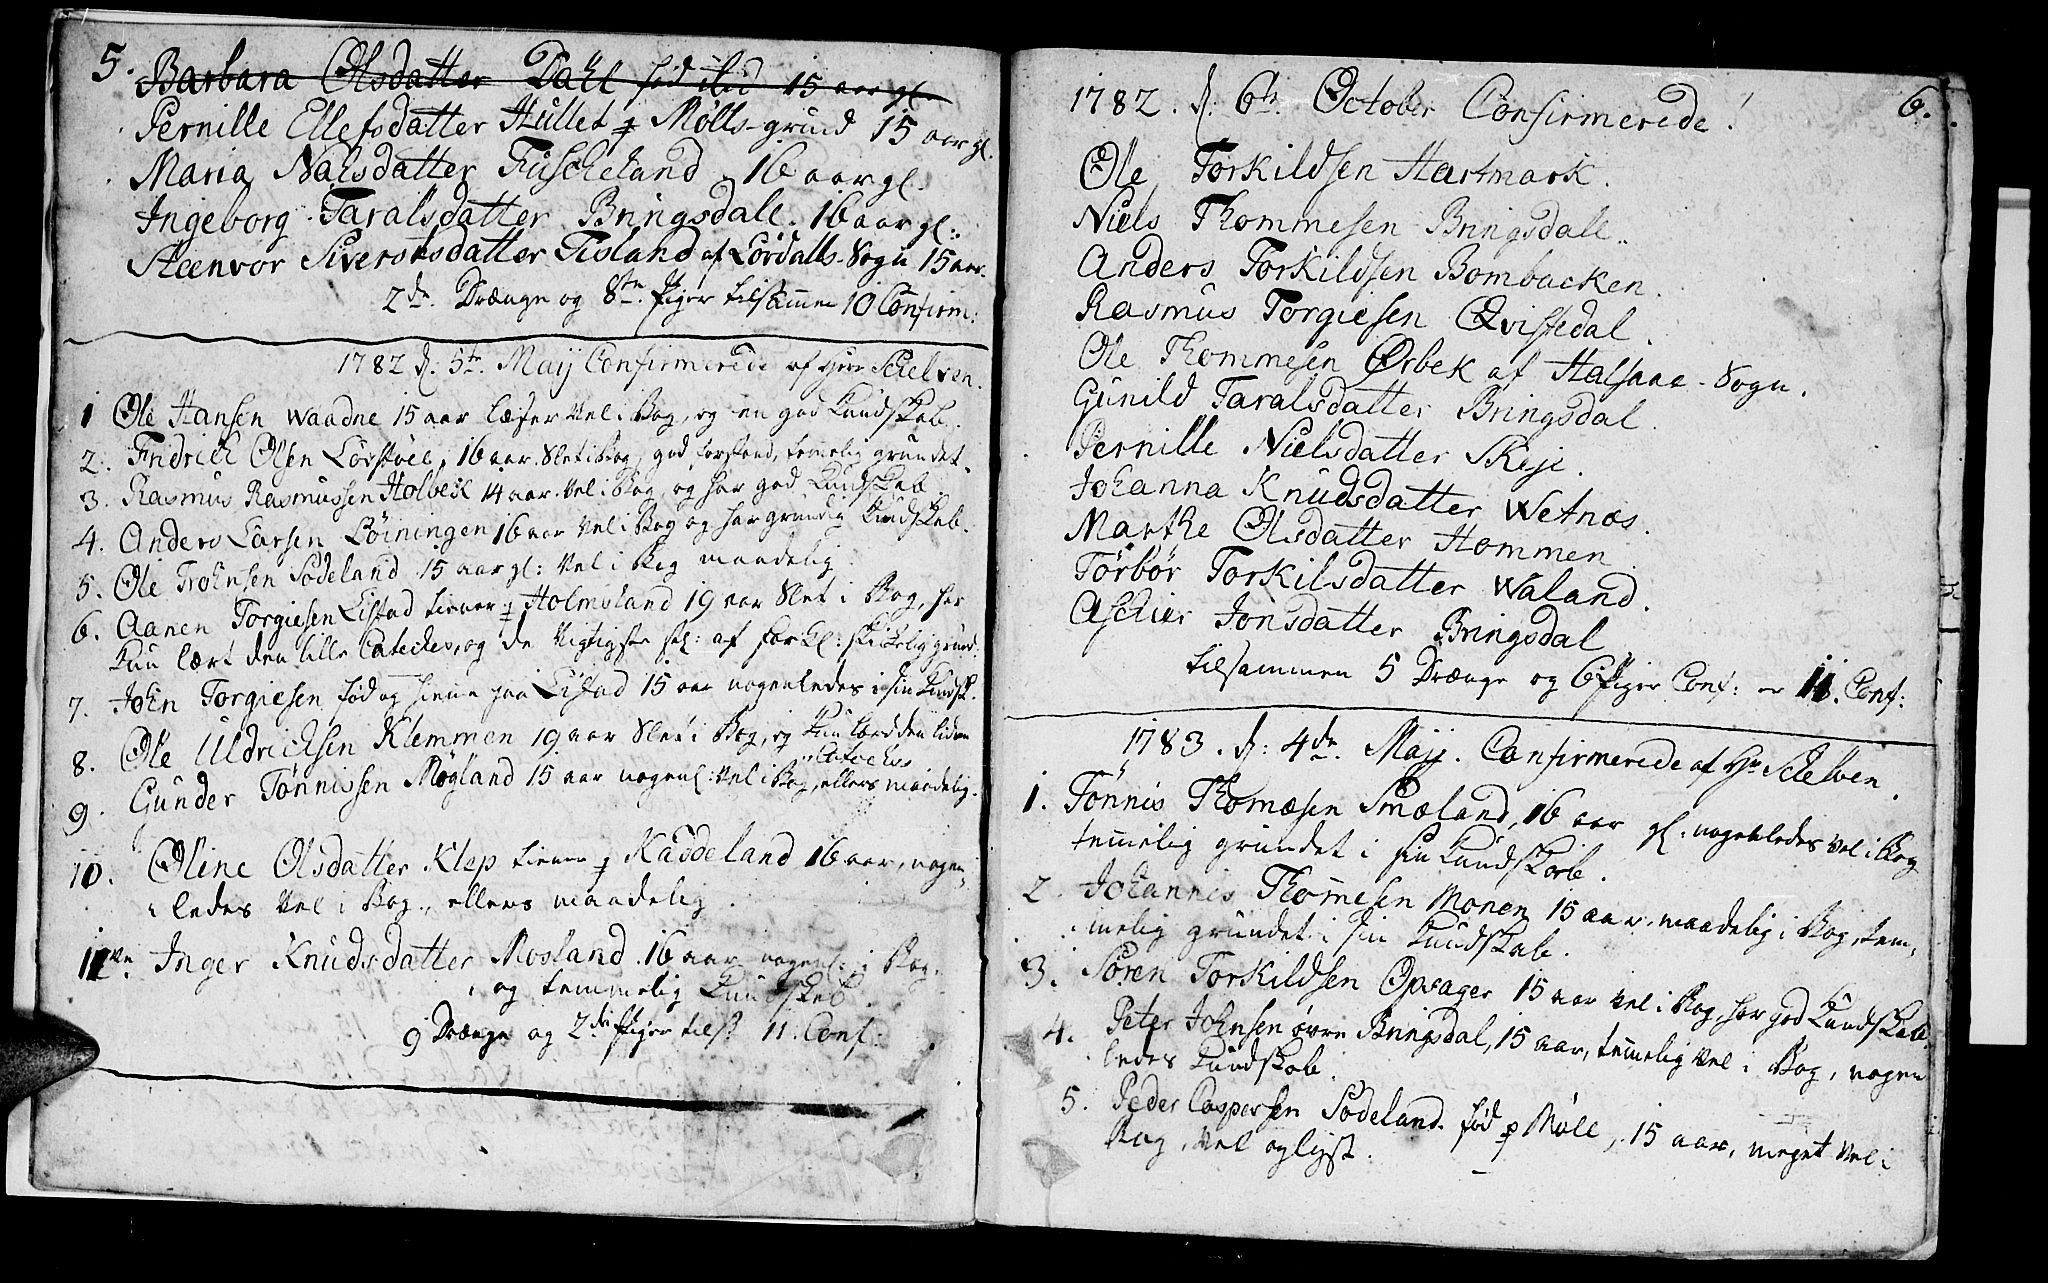 5.
Barbara Olsdatter Dahl fød ibid 15 aar gl.
Pernille Ellefsdatter Hullet p Mølls-grund 15 aar gl.
Maria Nalsdatter Fuscheland 16 aar gl.
Ingeborg Taralsdatter Bringsdall. 16 aar gl:
Steenvor Siversdatter Tisland af Lördalls Sogn 15 aar.
2de Drænge og 8te Piger tilsamen 10 Confirm:
1782 d: 5te Maij Confirmerede af Herr Schelven.
1 Ole Hansen Waadne 15 aar læser Vel i Bog, og en god Kundskab.
2. Fridrich Olsen Lörstöel, 16 aar. Slet i Bog, god forstand, temelig grundet.
3. Rasmus Rasmussen Holbek 14 aar. Vel i Bog, og har god Kundskab
4. Anders Larsen Löiningen 16 aar Vel i Bog og har grundig Kundskab.
5. Ole Trohnsen Sodeland 15 aar gl: Vel i Bog maadelig.
6. Aanen Torgiesen Eistad tiener p Holmsland 19 aar Slet i Bog, har
kun lært den lille Cateches, og de Vigtigste st: af forkl:
7. John Torgiesen fød og hieme paa Eistad 15 aar nogenledes i sin Kundsk.
8. Ole Uldrichsen Klemmen 19 aar Slet i Bog, og kun lærd den liden
Cateches
9. Gunder Tönnissen Mögland 15 aar nogenl: Vel i Bog, ellers maadelig.
10. Oline Olsdatter Klep tiener p Kaddeland 16 aar, nogen-
ledes Vel i Bog, ellers maadelig.
11te. Inger Knudsdatter Mosland. 16 aar nogenl: i Bog
og temmelig Kundskab.
9 Drænge og 2de Piger tils 11. Conf:
6.
1782. d: 6te October Confirmerede!
Ole Torkildsen Hartmark.
Niels Thommesen Bringsdall.
Anders Torkildsen Bombacken.
Rasmus Torgiesen Qvistedal.
Ole Thommesen Ørbek af Halsaae-Sogn.
Gunild Taralsdatter Bringsdal.
Pernille Nielsdatter Skeje.
Johanna Knudsdatter Wetnos.
Marthe Olsdatter Hommen
Törbör Torkilsdatter Waland.
Aschier Jonsdatter Bringsdal
tilsammen 5 Drænge og 6 Piger Conf: er 11. Conf:
1783. d: 4de Maij. Confirmerede af Hr Schelven.
1. Tönnis Thomæsen Smæland, 16 aar gl: nogenledes Vel i Bog
temelig grundet i sin Kundskab.
2. Johannis Thomesen Monen 15 aar, maadelig i Bog, tem-
melig grundet i sin Kundskab.
3. Sören Torkildsen Opsager 15 aar Vel i Bog, har god Kundskab.
4. Peter Johnsen övre Bringsdal, 15 aar, temelig Vel i Bog, nogen
ledes Kundskab.
5. Peder Caspersen Sodeland. fød p Möll, 15 aar, meget Vel i
Bog, Vel oplyst.